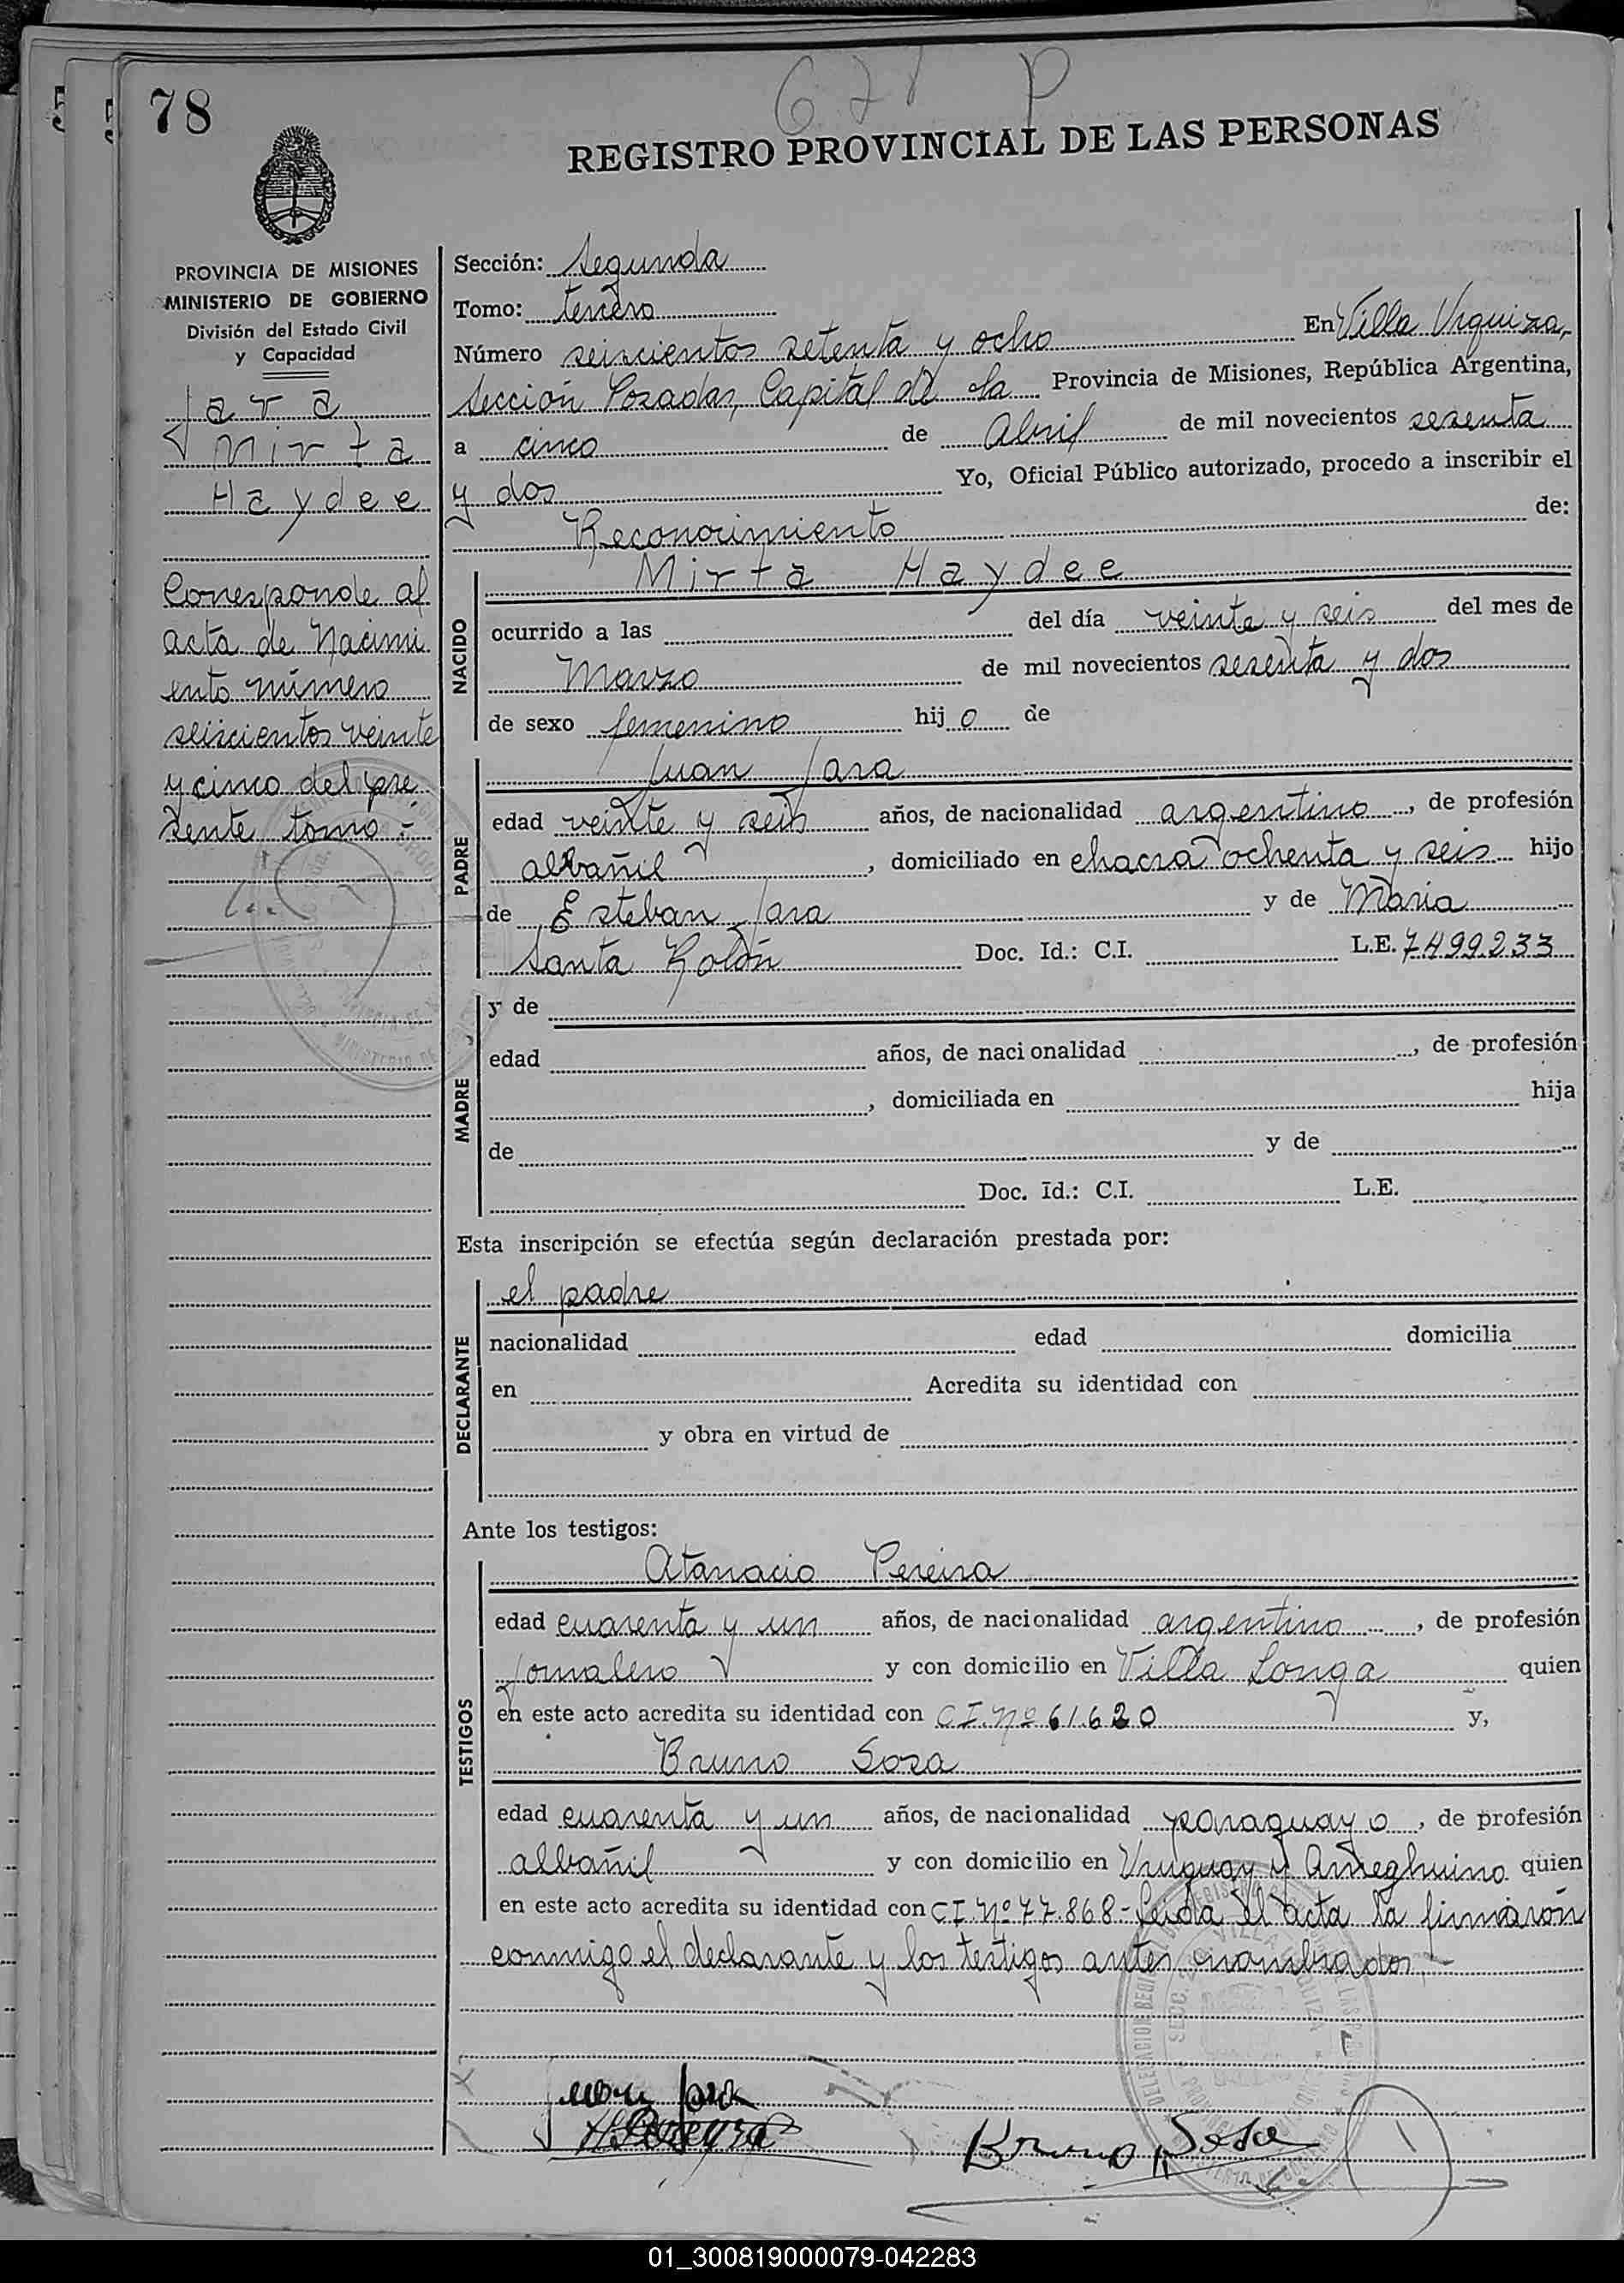 678 P
78
REGISTRO PROVINCIAL DE LAS PERSONAS
PROVINCIA DE MISIONES
MINISTERIO DE GOBIERNO
División del Estado Civil
y Capacidad
Jara
Mirta
Haydee
Corresponde al
acta de Nacimi
ento número
seiscientos veinte
y cinco del pre
sente tomo.-
Sección: Segunda
Tomo: tercero
Número seiscientos setenta y ocho En Villa Urquiza,
Sección Posadas, Capital de la Provincia de Misiones, República Argentina,
a cinco de Abril de mil novecientos sesenta
y dos Yo, Oficial Público autorizado, procedo a inscribir el
Reconocimiento de:
NACIDO
Mirta Haydee
ocurrido a las del día veinte y seis del mes de
Marzo de mil novecientos sesenta y dos
de sexo femenino hijo de
PADRE
Juan Jara
edad veinte y seis años, de nacionalidad argentino, de profesión
albañil, domiciliado en chacra ochenta y seis hijo
de Esteban Jara y de Maria
Santa Rolón Doc. Id.: C.I. L.E. 7499233
MADRE
y de
edad años, de naci onalidad , de profesión
, domiciliada en hija
de y de
Doc. Id.: C.I. L.E.
Esta inscripción se efectúa según declaración prestada por:
DECLARANTE
el padre
nacionalidad edad domicilia
en Acredita su identidad con
y obra en virtud de
Ante los testigos:
TESTIGOS
Atanacio Pereira
edad cuarenta y un años, de nacionalidad argentino, de profesión
jornalero y con domicilio en Villa Longa quien
en este acto acredita su identidad con C.I. Nº 61.620 y,
Bruno Sosa
edad cuarenta y un años, de nacionalidad paraguayo, de profesión
albañil y con domicilio en Uruguay y Ameghuino quien
en este acto acredita su identidad con C.I. Nº 77.868- Leída el acta la firmaron
conmigo el declarante y los testigos antes nombrados.-
Juan Jara
Bruno Sosa
01_300819000079-042283